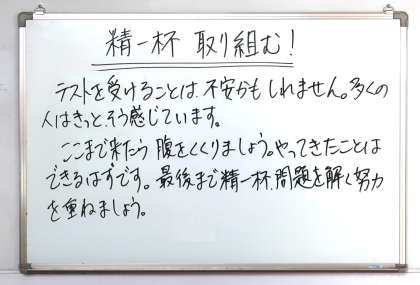 精一杯 取り組む!
テストを受けることは、不安かもしれません。多くの
人はきっと、そう感じています。
ここまで来たら腹をくくりましょう。やってきたことは
できるはずです。最後まで精一杯、問題を解く努力
を重ねましょう。